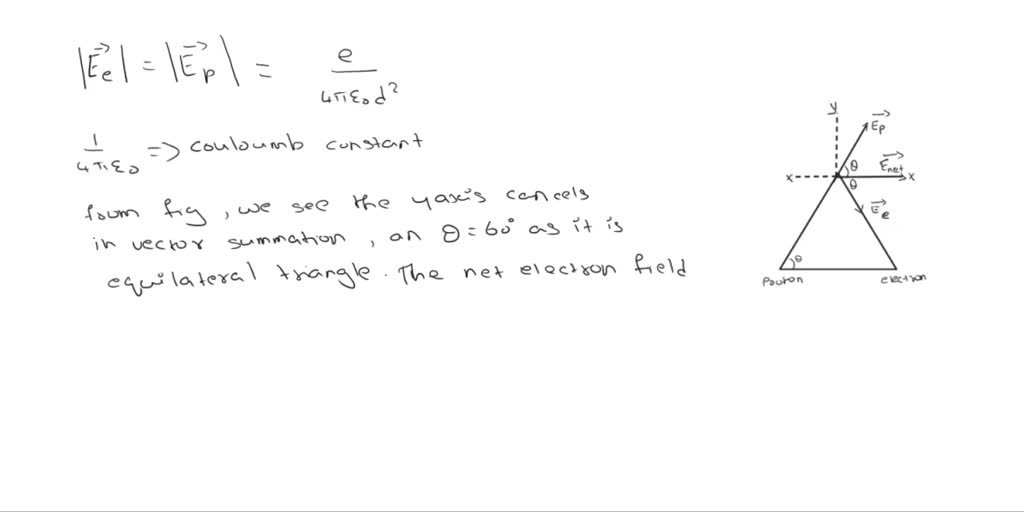 |E⃗e| = |E⃗p| = e / 4πε₀d²
1 / 4πε₀ => couloumb constant
from fig, we see the yaxis cancels
in vector summation, an θ = 60° as it is
equilateral triangle. The net electron field
y
E⃗p
θ
E⃗net
x
x
θ
E⃗e
θ
Proton
electron